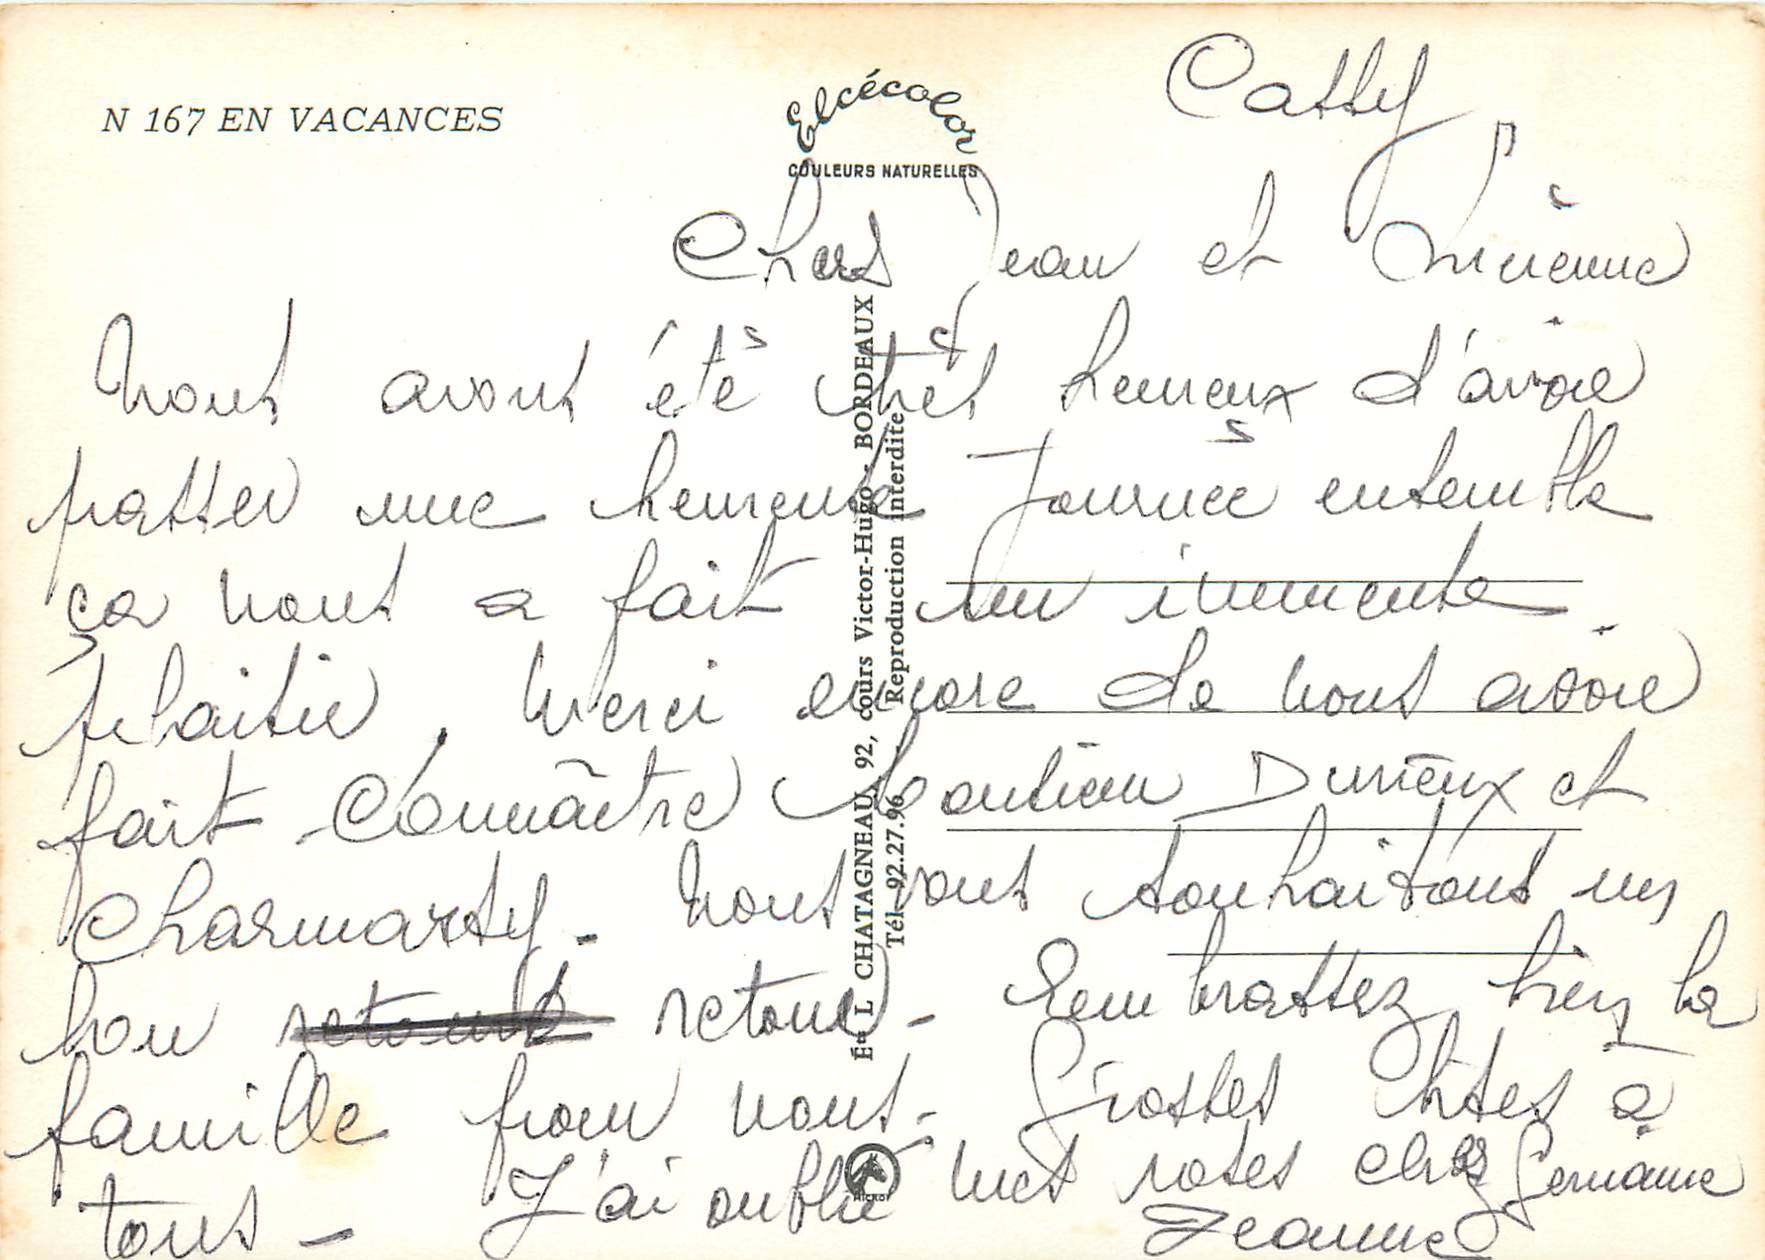 N 167 EN VACANCES
Elcécolor
COULEURS NATURELLES
Éts L CHATAGNEAU, 92, cours Victor-Hugo - BORDEAUX
Tél. 92.27.96 Reproduction interdite
Cathy,
Chers Jean et Lucienne
Nous avons été très heureux d'avoir
passer une heureuse journée ensemble
ça nous a fait un immense
plaisir. Merci encore de nous avoir
fait connaître Monsieur Durieux et
Nous vous souhaitons un
bon retour - Embrassez bien la
famille pour nous - Grosses bises à
tous - J'ai oublié mes roses chez Germaine
Jeanne